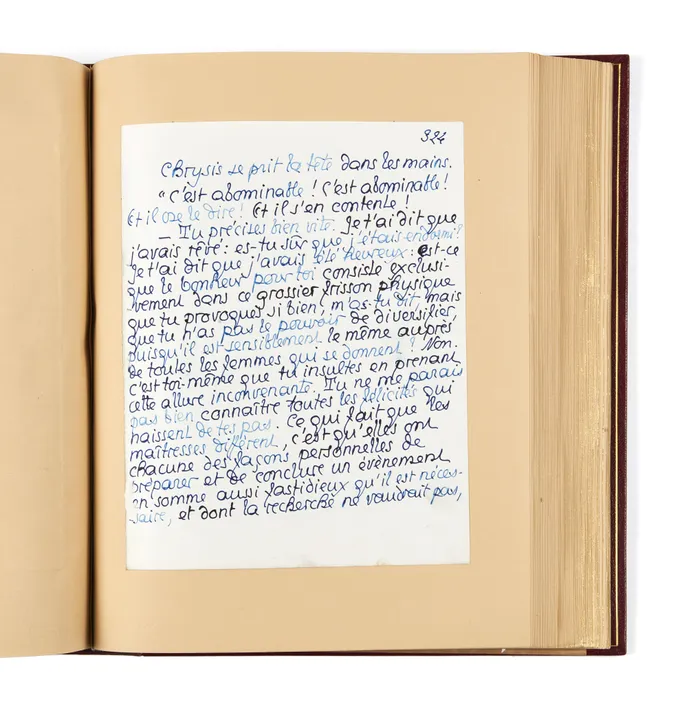 324
Chrysis se prit la tête dans les mains.
"C'est abominable ! C'est abominable !
Et il ose le dire ! Et il s'en contente !
— Tu précises bien vite. Je t'ai dit que
j'avais rêvé : es-tu sûr que j'étais endormi ?
Je t'ai dit que j'avais été heureux : est-ce
que le bonheur pour toi consiste exclusi-
vement dans ce grossier frisson physique
que tu provoques si bien, m'as-tu dit, mais
que tu n'as pas le pouvoir de diversifier,
puisqu'il est sensiblement le même auprès
de toutes les femmes qui se donnent ? Non.
c'est toi-même que tu insultes en prenant
cette allure inconvenante. Tu ne me parais
pas bien connaître toutes les félicités qui
naissent de tes pas. Ce qui fait que les
maîtresses diffèrent, c'est qu'elles ont
chacune des façons personnelles de
préparer et de conclure un évènement
en somme aussi fastidieux qu'il est néces-
saire, et dont la recherche ne vaudrait pas,